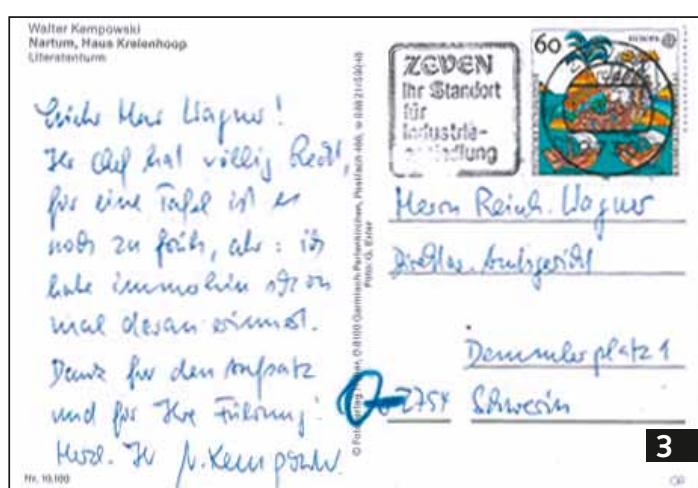 Walter Kempowski
Nartum, Haus Kreienhoop
Literatenturm
Lieber Herr Wagner!
Ihr Chef hat völlig Recht,
für eine Tafel ist es
noch zu früh, aber: ich
habe immerhin schon
mal daran erinnert.
Dank für den Aufsatz
und für Ihre Führung!
Herzl. Ihr W. Kempowski
Nr. 10.100
Garmisch-Partenkirchen, Postfach
Foto: G. Exler
ZEVEN
Ihr Standort
für
Industrie-
ansiedlung
60
EUROPA
Herrn Reinh. Wagner
Amtsgericht
Demmlerplatz 1
O-2754 Schwerin
3